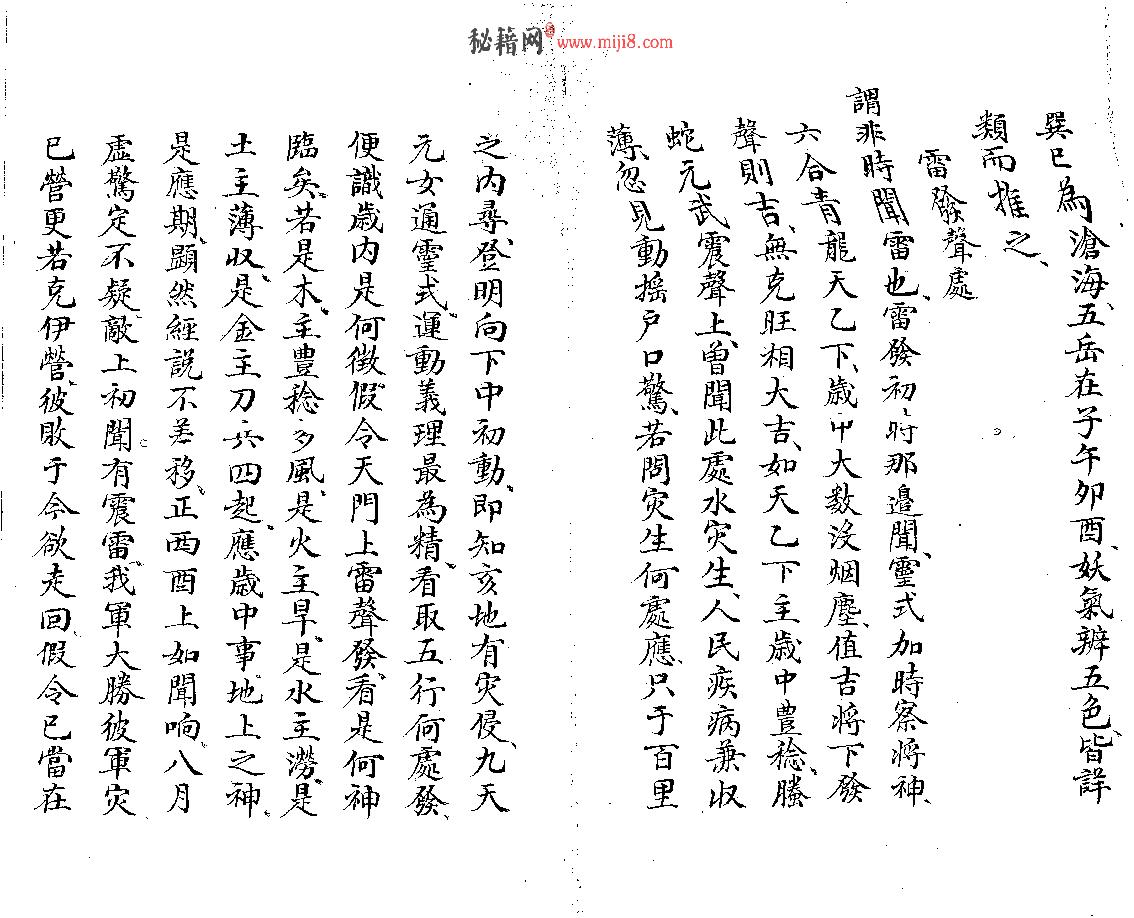 秘籍网 www.miji8.com
巽巳為滄海、五岳在子午卯酉、妖氣辨五色、皆詳
類而推之、
雷發聲處
謂非時聞雷也、雷發初時那邊聞、靈式加時察將神、
六合青龍天乙下、歲中大数没烟塵、值吉將下發
聲則吉、無克旺相大吉、如天乙下主歲中豊稔、螣
蛇元武震聲上、曽聞此處水灾生、人民疾病兼收
薄、忽見動摇户口驚、若問灾生何處應、只于百里
之内尋、登明向下中初動、即知亥地有灾侵、九天
元女通靈式、運動義理最為精、看取五行何處發、
便識歲内是何徴、假令天門上雷聲發、看是何神
臨矣、若是木、主豊稔多風、是火主旱、是水主澇、是
土主薄收、是金主刀兵四起、應歲中事、地上之神、
是應期、顕然經說不差移、正西酉上如聞响、八月
虚驚定不疑、敵上初聞有震雷、我軍大勝彼軍灾
已營更若克伊營、彼敗于今欲走回、假令已當在